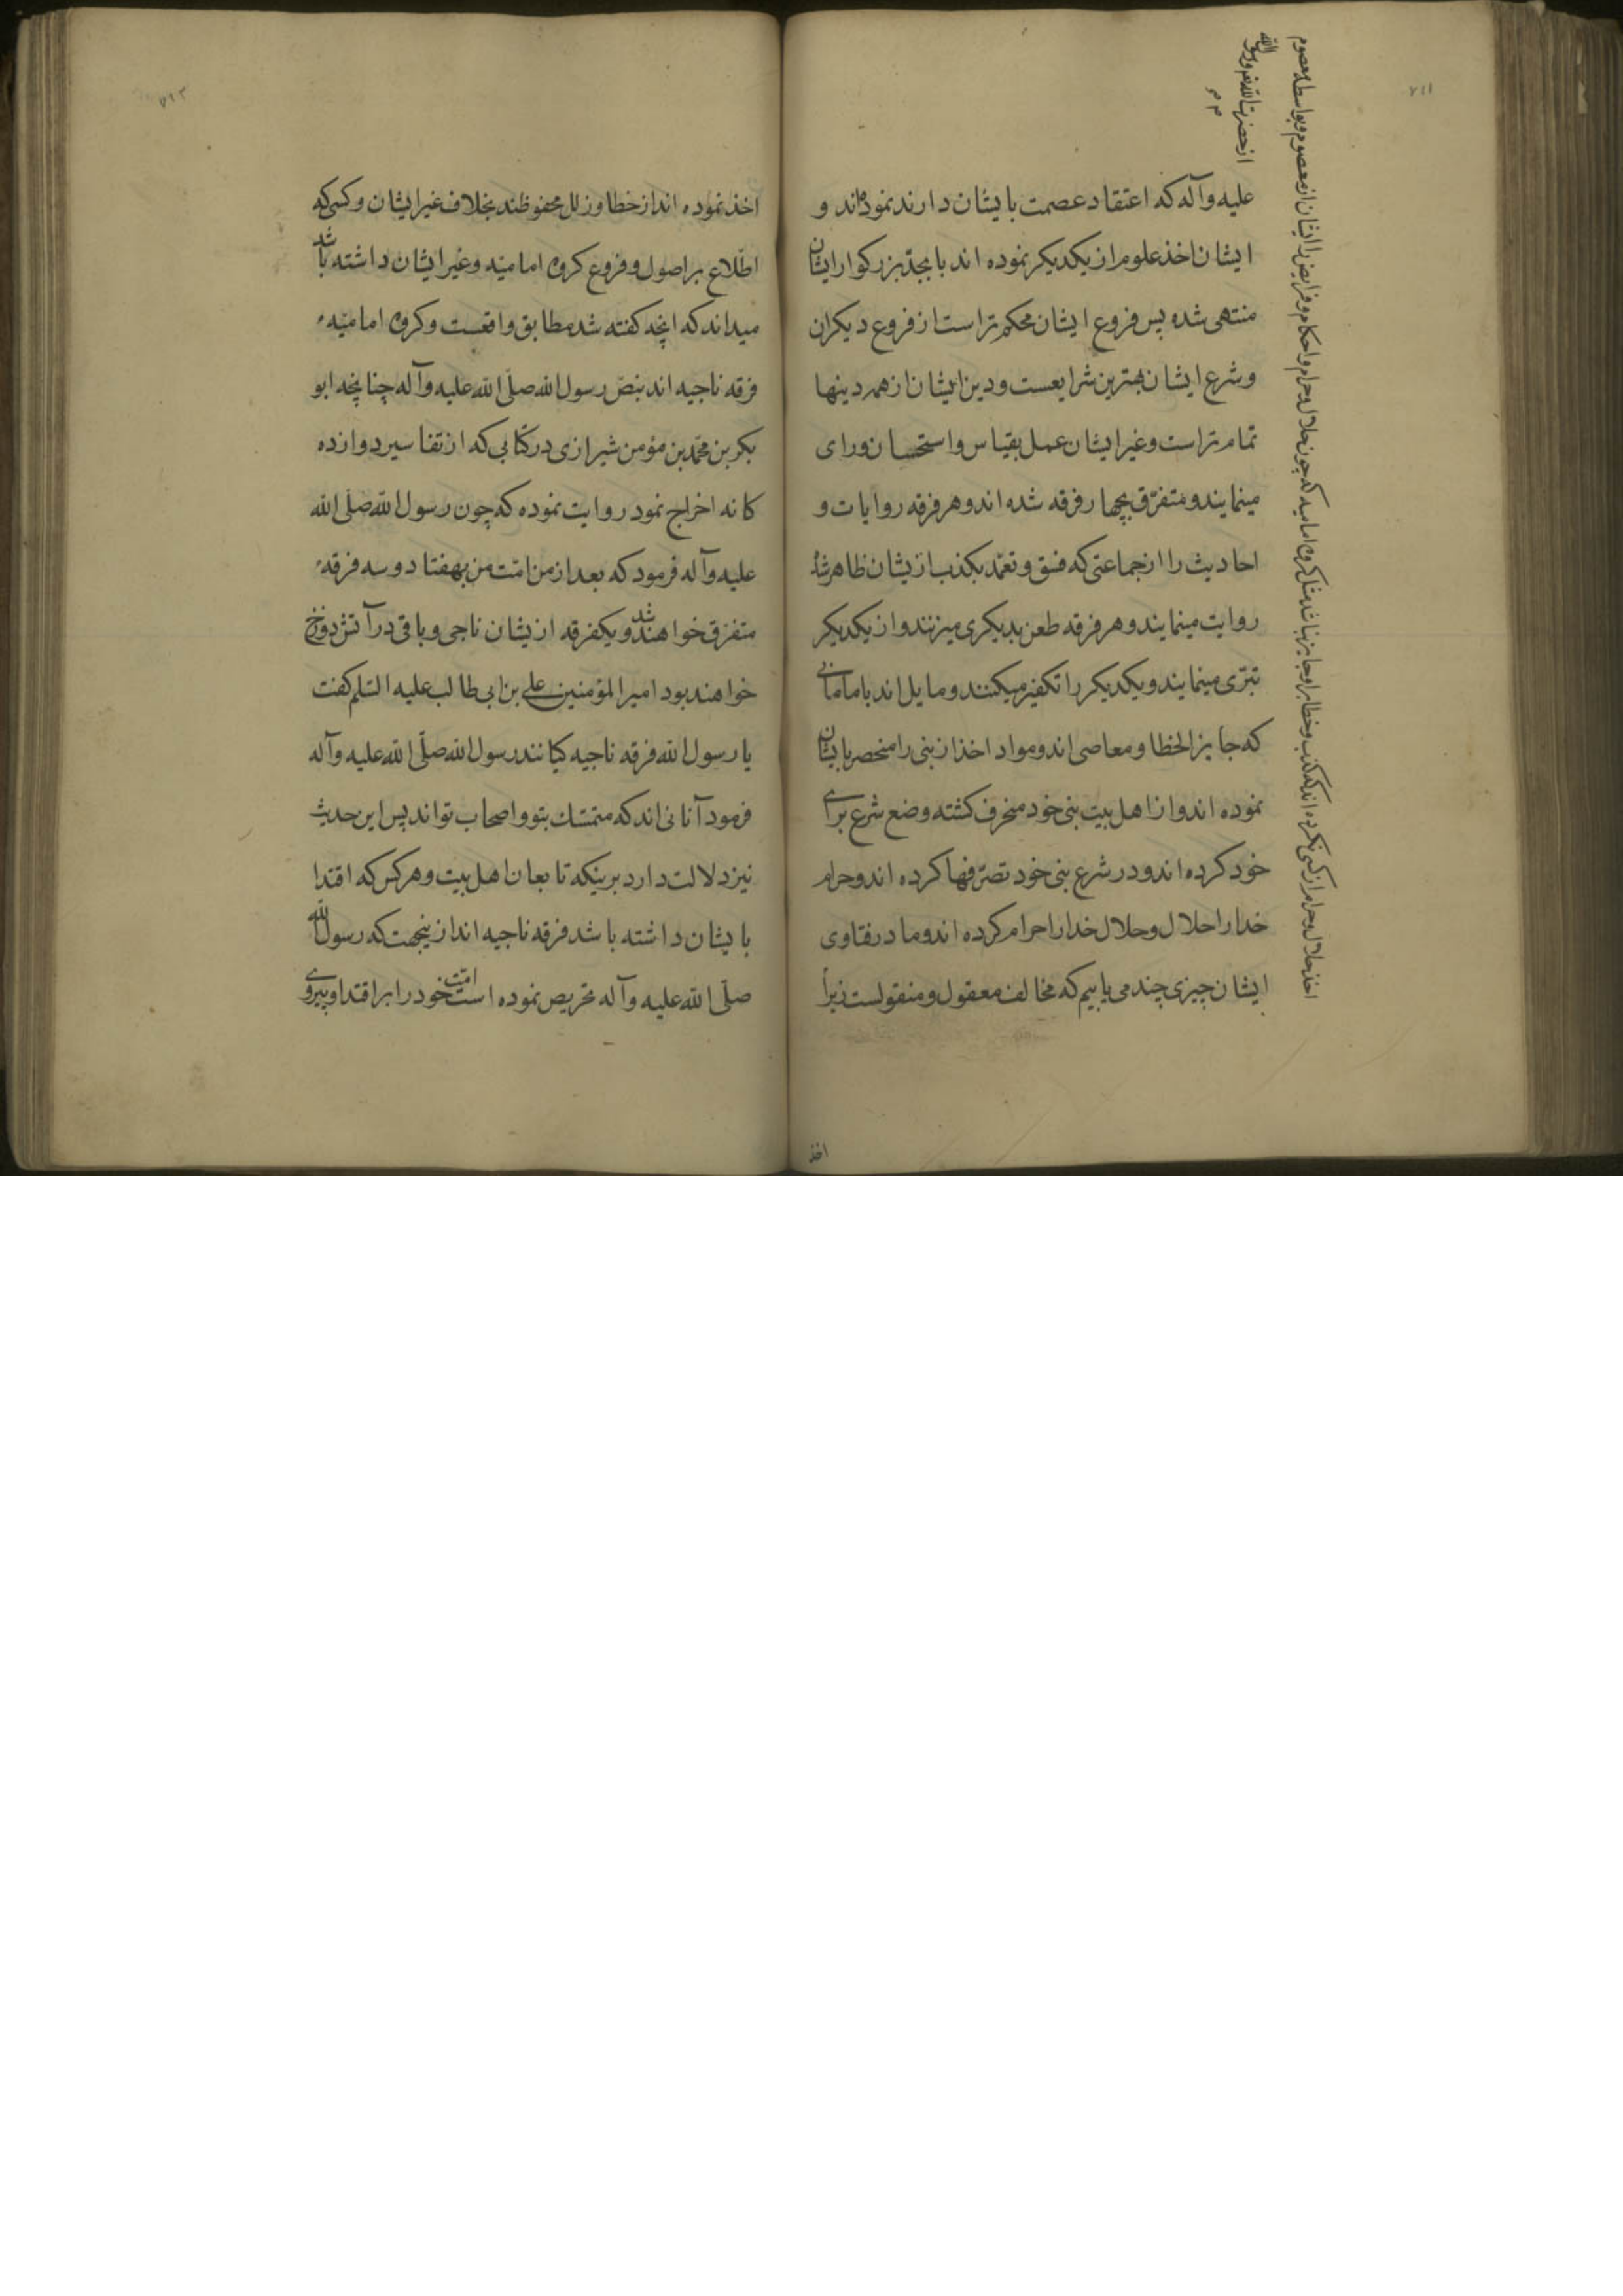 ۷۱۱
علیه وآله که اعتقاد عصمت بایشان دارند نموده‌اند و
ایشان اخذ علوم از یکدیکر نموده اند تا بجد بزرکوار ایشان
منتهی شده پس فروع ایشان محکم تر است از فروع دیکران
و شرع ایشان بهترین شرایعست ودین ایشان از همه دینها
تمام تر است وغیر ایشان عمل بقیاس واستحسان ورای
مینمایند و متفرق بچهار فرقه شده اند و هر فرقه روایات و
احادیث را از جماعتی که فسق و تعمّد بکذب ازیشان ظاهر شده
روایت مینمایند و هر فرقه طعن بدیکری میزنند و از یکدیکر
تبرّی مینمایند و یکدیکر را تکفیر میکنند و مایل اند باما مانی
که جایز الخطا و معاصی اند و مواد اخذ از نبی را منحصر بایشان
نموده اند و از اهل بیت نبی خود منحرف کشته وضع شرع برای
خود کرده اند و در شرع نبی خود تصرّفها کرده اند و حرام
خدا را حلال و حلال خدا را حرام کرده اند و ما در فتاوی
ایشان چیزی چند می یابیم که مخالف معقول و منقولست زیرا
اخذ حلال و حرام از کسی نکرده اند که کذب و خطا براو جایز نباشد مثل کروه امامیه که چون حلال و حرام و احکام و فرایض را ایشان از معصوم و بواسطه معصوم
از حضرت الله و رسول الله
اخذ
۷۱۲
اخذ نموده اند از خطا و زلل محفوظند بخلاف غیر ایشان و کسی که
اطّلاع بر اصول و فروع کروه امامیّه و غیر ایشان داشته باشد
میداند که انچه کفته شد مطابق واقعست و کروه امامیّه
فرقه ناجیه اند بنصّ رسول الله صلّی الله علیه وآله چنانچه ابو
بکر بن محمّد بن مؤمن شیرازی در کتابی که از تفاسیر دوازده
کانه اخراج نمود روایت نموده که چون رسول الله صلّی الله
علیه وآله فرمود که بعد از من امّت من بهفتاد و سه فرقه
متفرق خواهند شد و یکفرقه ازیشان ناجی و باقی در آتش دوزخ
خواهند بود امیر المؤمنین علی بن ابی طالب علیه السّلم کفت
یا رسول الله فرقه ناجیه کیانند رسول الله صلّی الله علیه وآله
فرمود آنانی اند که متمسّک بتو و اصحاب تو اند پس این حدیث
نیز دلالت دارد برینکه تابعان اهل بیت و هر کس که اقتدا
بایشان داشته باشد فرقه ناجیه اند ازینجهت که رسول الله
صلّی الله علیه وآله تحریص نموده است امّت خود را بر اقتدا و پیروی